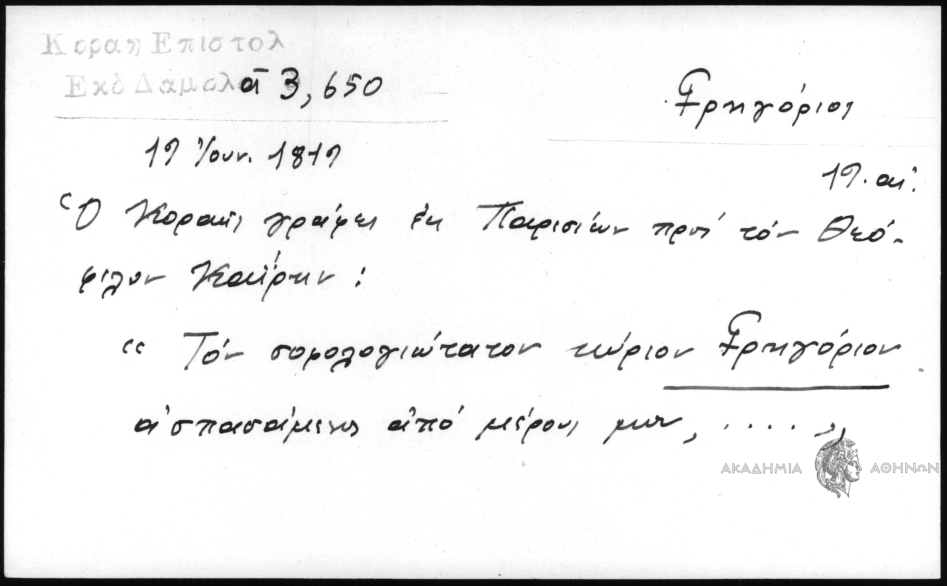 Κοραη Επιστολ
Εκδ Δαμαλα α 3, 650
Γρηγόριος
19 Ἰουν. 1819
19. αἰ.
Ὁ Κοραῆς γράφει ἐκ Παρισίων πρὸς τὸν Θεό-
φιλον Καΐρην :
“ Τὸν σοφολογιώτατον κύριον Γρηγόριον
ἀσπασάμενος ἀπὸ μέρους μου, . . . . ,,
ΑΚΑΔΗΜΙΑ ΑΘΗΝΩΝ